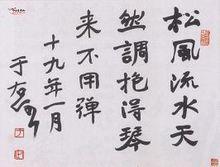 松風流水天
然調抱得琴
来不用彈
十九年一月
于右任